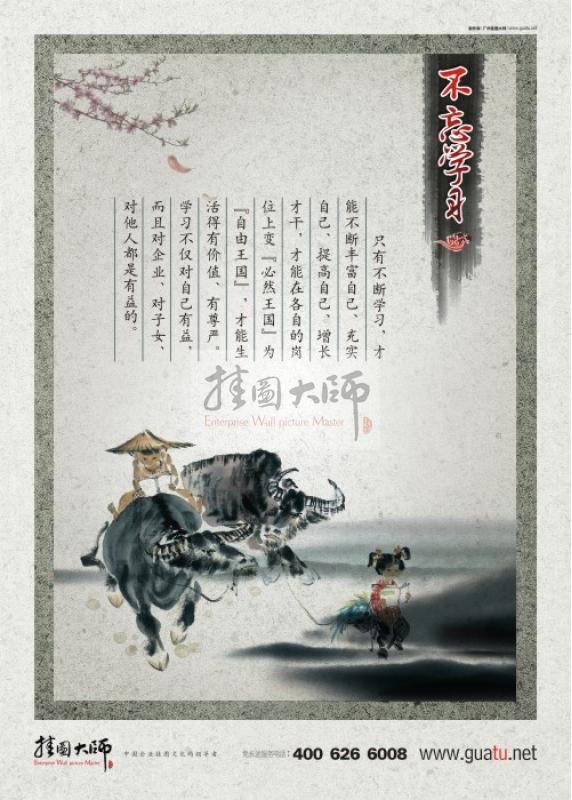 www.guatu.net
不忘学习
只有不断学习，才
能不断丰富自己、充实
自己、提高自己、增长
才干，才能在各自的岗
位上变『必然王国』为
『自由王国』，才能生
活得有价值、有尊严。
学习不仅对自己有益，
而且对企业、对子女、
对他人都是有益的。
挂图大师
Enterprise Wall picture Master
挂图大师
Enterprise Wall picture Master
中国企业挂图文化的领导者
免长途服务电话：400 626 6008
www.guatu.net